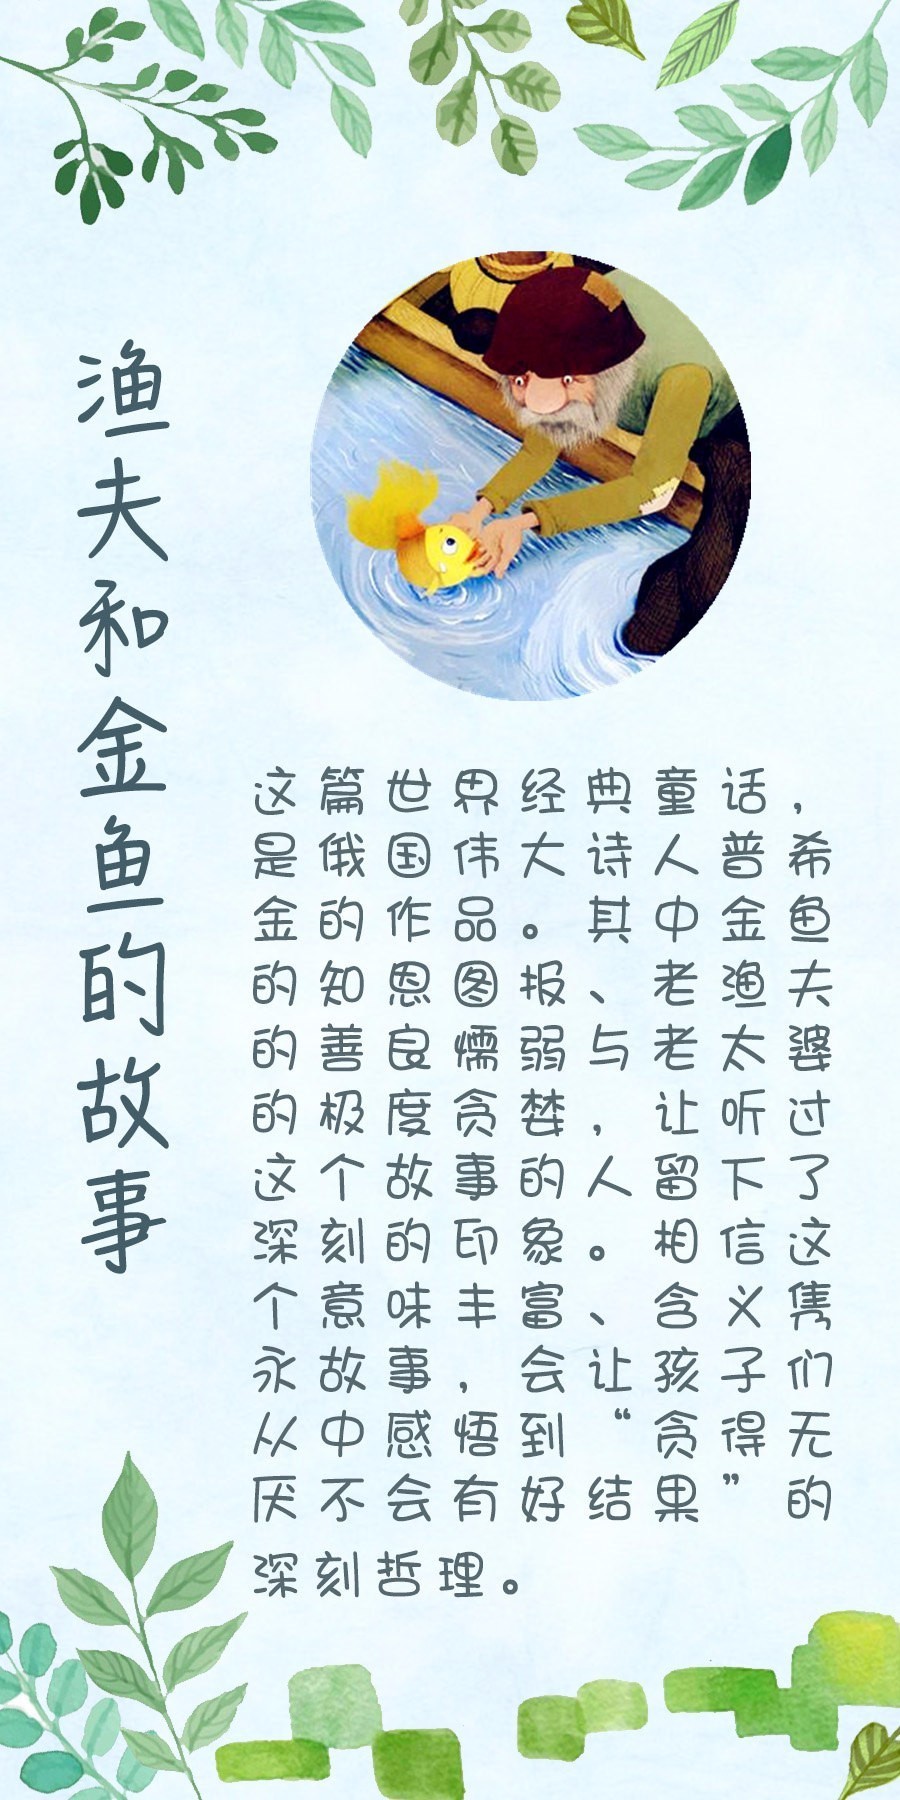 渔夫和金鱼的故事
这篇世界经典童话，
是俄国伟大诗人普希
金的作品。其中金鱼
的知恩图报、老渔夫
的善良懦弱与老太婆
的极度贪婪，让听过
这个故事的人留下了
深刻的印象。相信这
个意味丰富、含义隽
永故事，会让孩子们
从中感悟到“贪得无
厌不会有好结果”的
深刻哲理。